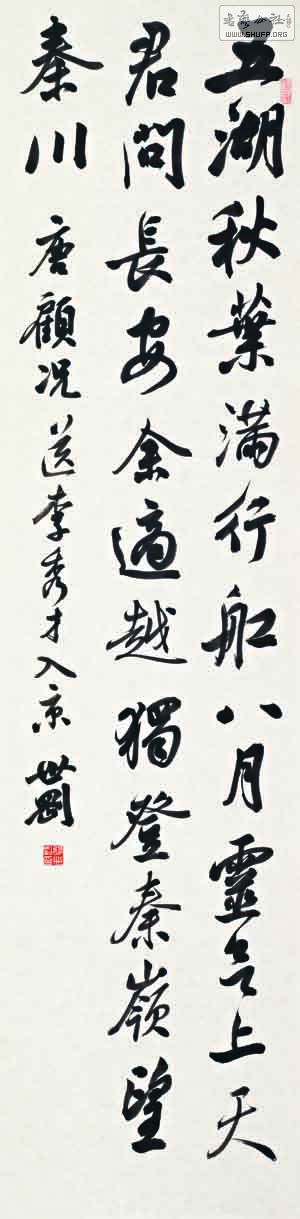 五湖秋葉滿行船八月靈上天
君問長安余適越獨登秦嶺望
秦川 唐顧況送李秀才入京 世剛
WWW.SHUFA.ORG